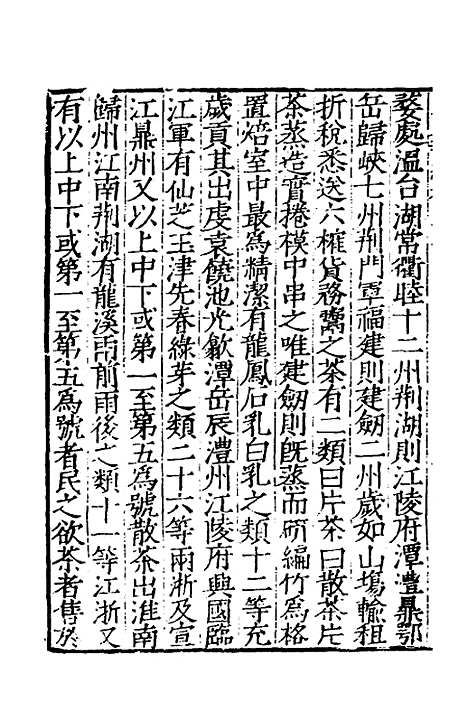 婺處溫台湖常衢睦十二州荆湖則江陵府潭澧鼎鄂
岳歸峽七州荆門軍福建則建劒二州歲如山塲輸租
折稅悉送六榷貨務鬻之茶有二類曰片茶曰散茶片
茶蒸造實捲模中串之唯建劒則旣蒸而研編竹爲格
置焙室中最爲精潔有龍鳳石乳白乳之類十二等充
歲貢其出虔袁饒池光歙潭岳辰澧州江陵府興國臨
江軍有仙芝玉津先春綠芽之類二十六等兩浙及宣
江鼎州又以上中下或第一至第五爲號散茶出淮南
歸州江南荆湖有龍溪雨前雨後之類十一等江浙又
有以上中下或第一至第五爲號者民之欲茶者售於